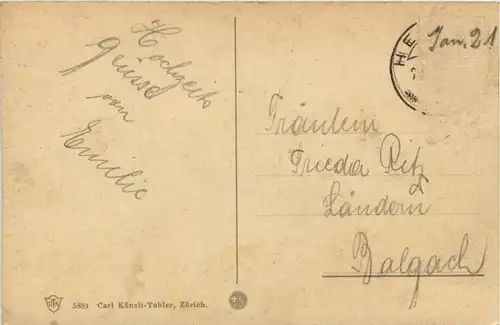 Hochzeits
Grüsse
von
Emilie
HE
Jan. 21
Fräulein
Frieda Ritz
Ländern
Balgach
5881 Carl Künzli-Tobler, Zürich.